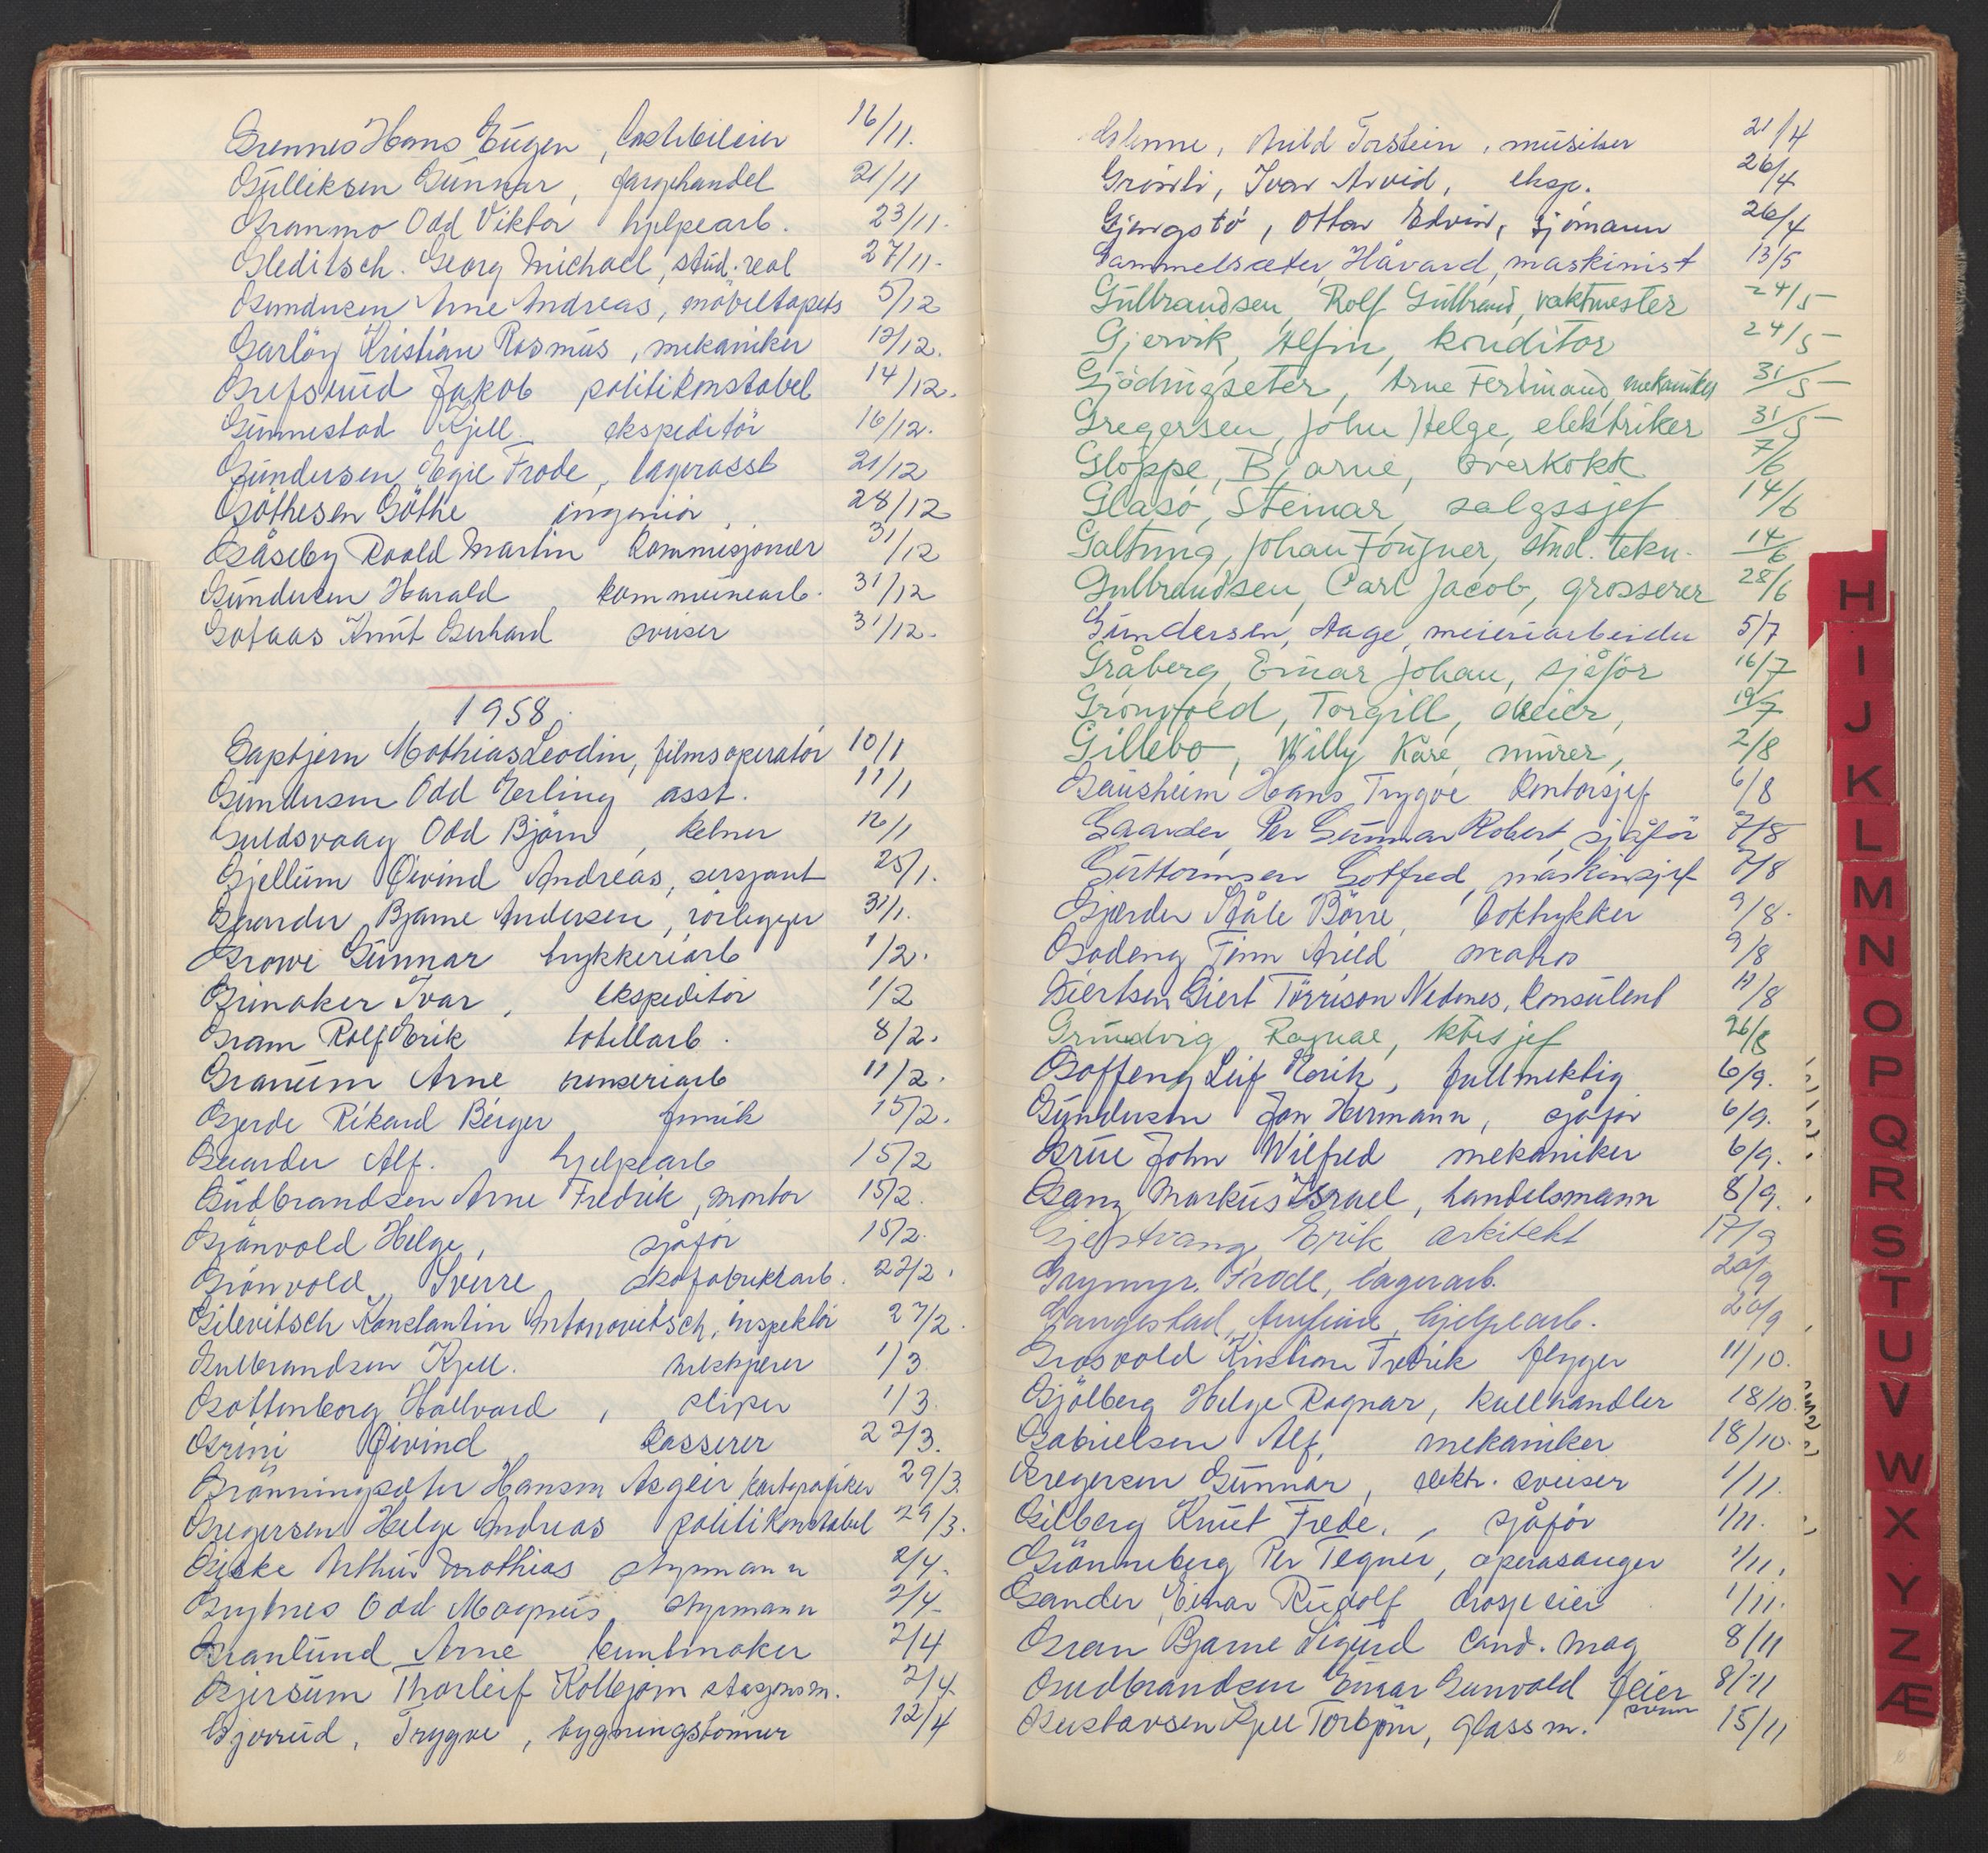 Grennes Hans Eugen, lastebileier 16/11.
Gulliksen Gunnar, fargehandel 21/11
Granmo Odd Viktor hjelpearb. 23/11.
Gleditsch. Georg Michael, stud. real 27/11.
Gundersen Arne Andreas, möbeltapets 5/12
Garlöy Kristian Rasmus, mekaniker 12/12.
Grefsrud Jakob politikonstabel 14/12.
Gunnestad Kjell. ekspeditör 16/12.
Gundersen Egil Frode, lagerasst 21/12
Göthesen Göthe ingeniör 28/12
Gåseby Roald Martin kommisjonær 31/12
Gundersen Harald kommunearb. 31/12
Gofaas Knut Gerhard sveiser 31/12.
1958.
Gaptjern Mathias Leodin, filmsoperatör 10/1
Gundersen Odd Erling asst. 11/1
Guldsvaag Odd Björn, kelner 16/1
Gjellum Øivind Andreas, sersjant 25/1.
Gaarder, Bjarne Andersen, rörlegger 31/1.
Growe Gunnar trykkeriarb 1/2.
Grinaker Ivar, ekspeditör 1/2
Gram Rolf Erik hotellarb. 8/2.
Granum Arne renseriarb 11/2.
Gjerde Rikard Birger 15/2.
Gaarder Alf. hjelpearb 15/2
Gudbrandsen Arne Fredrik, montör 15/2.
Grönvold Helge, sjåför 15/2.
Grönvold, Sverre skofabrikkarb. 22/2.
Gilevitsch Konstantin Antonovitsch, inspektör 27/2.
Gulbrandsen Kjell. 1/3
Gottenborg Hallvard, sliper 1/3.
Grini Øivind kasserer 22/3.
Grönningsæter Hansm Asgeir kartografiker 29/3.
Gregersen Helge Andreas politikonstabel 29/3.
Giske Arthur Mathias styrmann 2/4.
Grytnes Odd Magnus, styrmann 2/4
Granlund Arne buntmaker 2/4
Gjersum Thorleif Kolbjörn stasjonsm. 2/4
Gjerrud, Trygve, bygningstömrer 12/4
Glenne, Arild Torstein, musiker 21/4
Grinili, Ivar Arvid, eksp. 26/4
Gjengstö, Ottar Edvin, sjömann 26/4
Gammelsæter, Håvard, maskinist 13/5
Gulbrandsen, Rolf Gulbrand, vaktmester 24/5
Gjervik, Alfin, konditor 24/5
Gjödingseter, Arne Ferdinand, mekaniker 31/5
Gregersen, John Helge, elektriker 31/5
Gloppe, Bjarne, overkokk 7/6
Glasö, Steinar, salgssjef 14/6
Galtung, Johan Fougner, stud. tekn. 14/6
Gulbrandsen, Carl Jacob, grosserer 28/6
Gundersen, Aage, meieriarbeider 5/7
Gråberg, Einar Johan, sjåför 16/7
Grönvold, Torgill, 19/7
Gillebo, Willy Kåre, murer, 2/8
Gausheim Hans Trygve kontorsjef 6/8
Gaarder, Per Gunnar Robert, sjåför 7/8
Guttormsen Gotfred, maskinsjef 7/8
Gjærder Ståle Börre, boktrykker 9/8.
Godeng Finn Arild matros 9/8
Giertsen Giert Törrison Nedenes, konsulent 11/8
Grundvig Ragnar, ktrsjef 26/8
Goffeng Leif Erik, fullmektig 6/9.
Gundersen Jan Hermann, sjåför 6/9.
Grue John Wilfred mekaniker 6/9.
Ganz Markus Israel, handelsmann 8/9.
Gjestvang, Erik, arkitekt 17/9
Grymyr. Frode, lagerarb. 20/9
Gangestad, Amfinn, hjelpearb. 20/9
Grosvold Kristian Fredrik flyger 11/10.
Gjölberg Helge Ragnar, kullhandler 18/10.
Gabrielsen Alf, mekaniker 18/10.
Gregersen Gunnar, elektr. sveiser 1/11.
Gilberg Knut Frede, sjåför 1/11.
Grönneberg Per Tegner, operasanger 1/11.
Gander, Einar Rudolf drosjeeier 1/11.
Gran Bjarne Sigurd cand. mag 8/11
Gudbrandsen Einar Gunvald feier svenn 8/11
Gustavsen Kjell Torbjörn, glassm. 15/11
H
I
J
K
L
M
N
O
P
Q
R
S
T
U
V
W
X
Y
Z
Æ